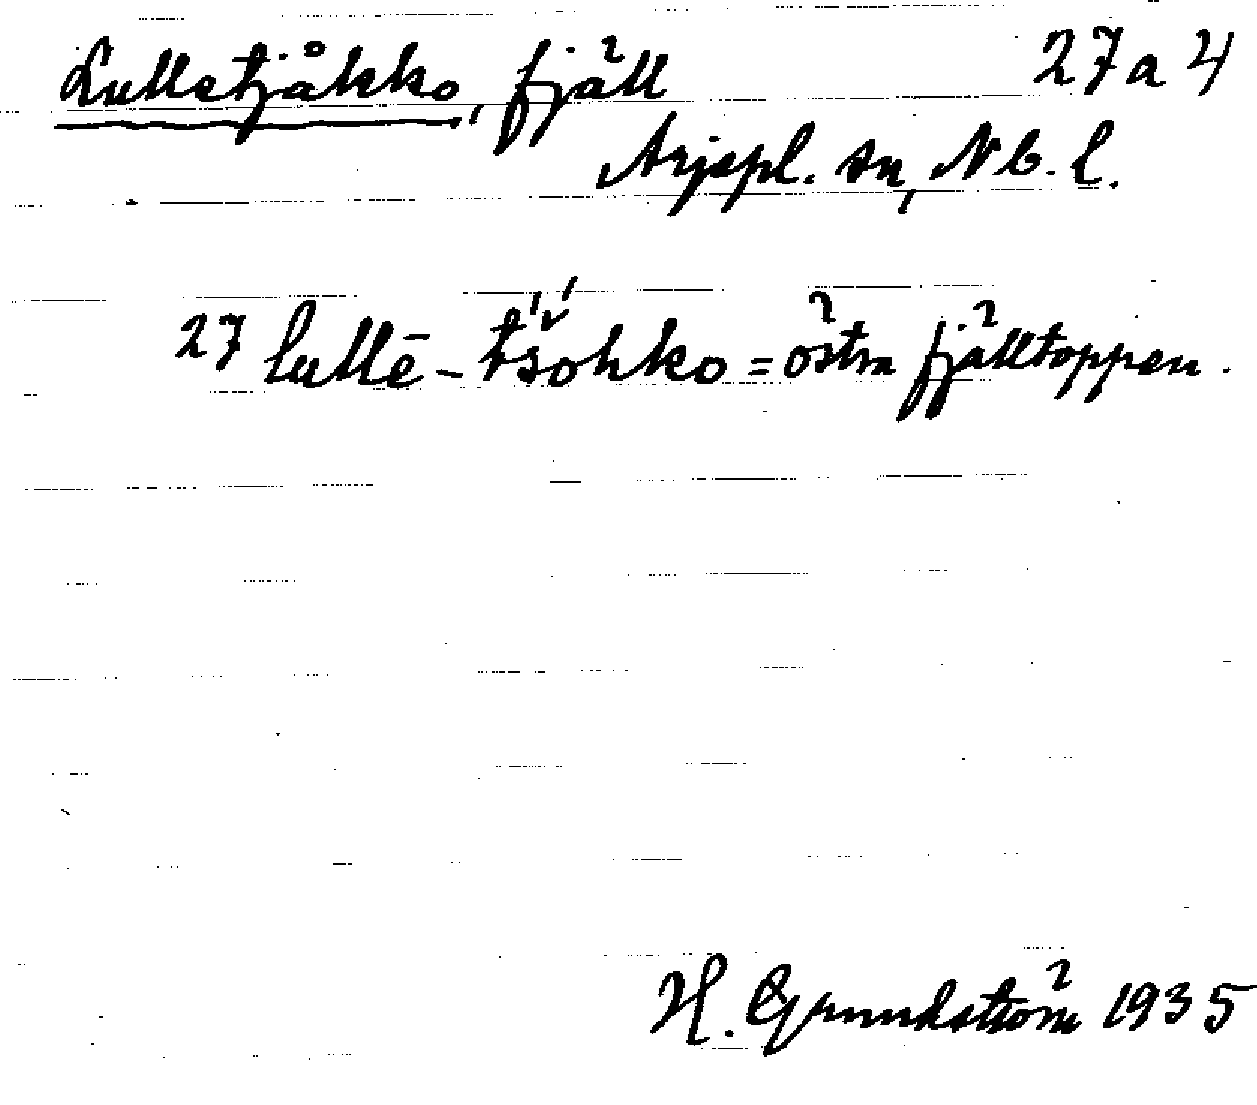 Lulletjåkko, fjäll 27a4
Arjepl. sn, Nb. l.
27 lullē-t́š́ohko = östra fjälltoppen.
H. Grundström 1935